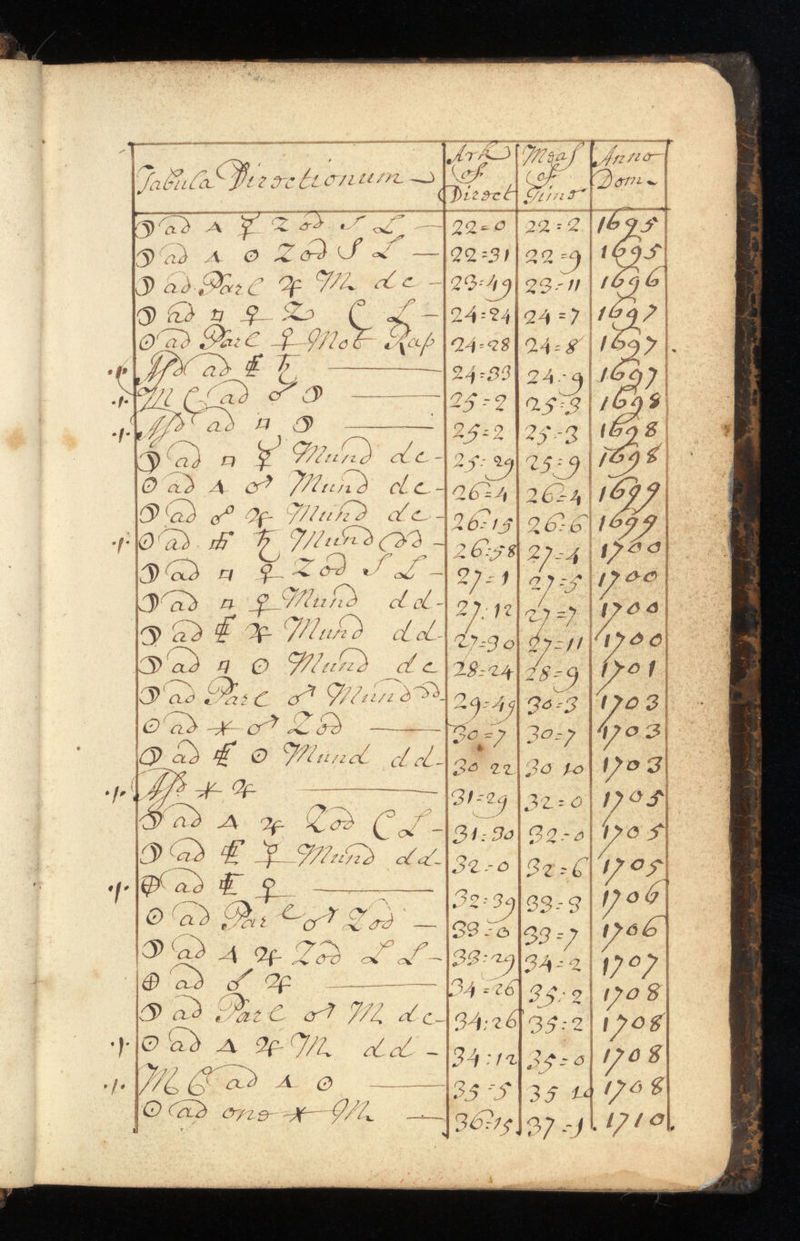 Tabula Directionum Ark of Direct Meas of Time Anno Dom
☽ ad △ ☿ Zod S L 22=0 22=2 1695
☽ ad △ ☉ Zod S L 22=31 22=9 1695
☽ ad Parl ♃ M dc 23=49 23=11 1696
☽ ad □ ♀ Zo C L 24=24 24=7 1697
☉ ad Parl ♀ Mot Rap 24=28 24=8 1697
Asd ad ♄ 24=33 24=9 1697
M C ad ☌ ☽ 25=2 25=3 1698
Asd ad □ ☽ 25=2 25=3 1698
☽ ad □ ☿ Mund dc 25=29 25=9 1698
☉ ad △ ♂ Mund dc 26=4 26=4 1699
☽ ad ☍ ♃ Mund dc 26=15 26=6 1699
☉ ad ♄ Mund dd 26=58 27=4 1700
☽ ad □ ♀ Zod S L 27=1 27=5 1700
☽ ad □ ♀ Mund dd 27=12 27=7 1700
☽ ad ♃ Mund dd 27=30 27=11 1700
☽ ad □ ☉ Mund dc 28=24 28=9 1701
☽ ad Parl ♂ Mund dd 29=49 30=3 1703
☉ ad ⚹ ♂ Zod 30=7 30=7 1703
☽ ad ☉ Mund dd 30 22 30 10 1703
Asd ⚹ ♃ 31=29 32=0 1705
☽ ad △ ♃ Zod C L 31=30 32=0 1705
☽ ad ☿ Mund dd 32=0 32=6 1705
⊕ ad ♀ 32=39 33=3 1706
☉ ad Parl ♂ Zod 33=0 33=7 1706
☽ ad △ ♃ Zod L L 33=29 34=2 1707
⊕ ad ☌ ♃ 34=26 35=2 1708
☽ ad Parl ♂ M dc 34=26 35=2 1708
☉ ad △ ♃ M dd 34=12 35=0 1708
M C ad △ ☉ 35=5 35 10 1708
☉ ad one ⚹ M 36=15 37=1 1710